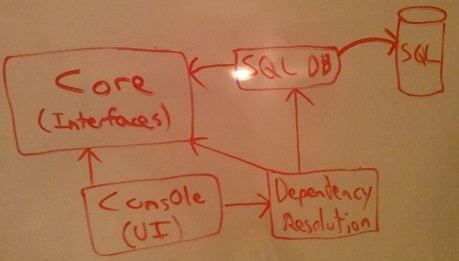 Core
(Interfaces)
SQL DB
SQL
Console
(UI)
Dependency
Resolution